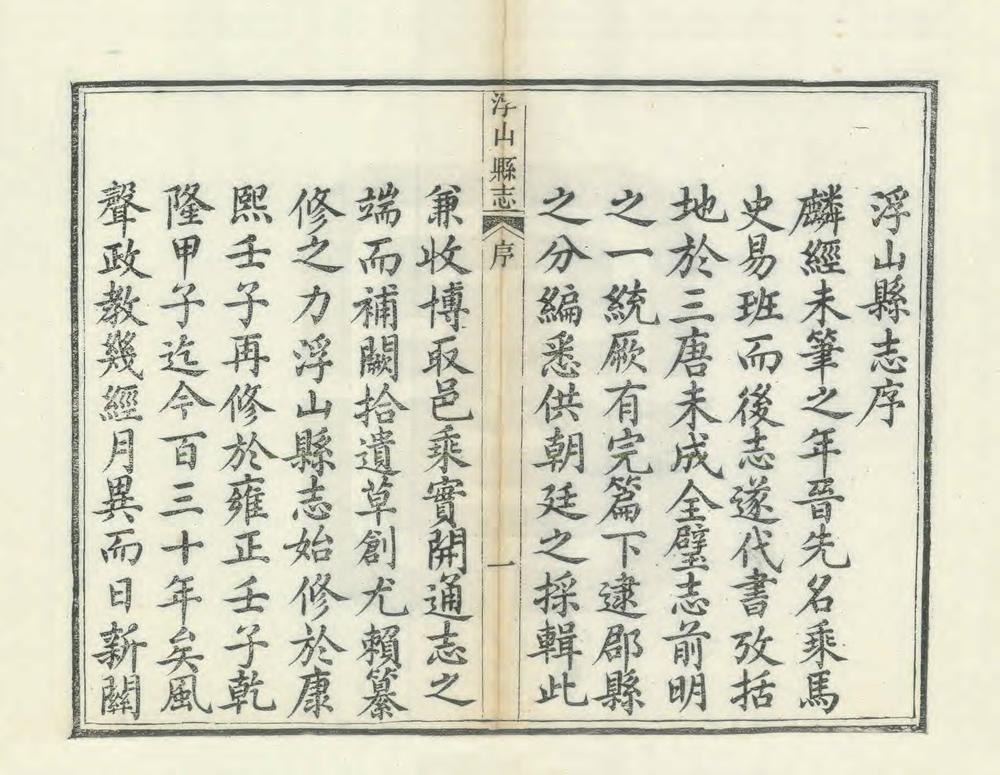 浮山縣志序
麟經未筆之年晉先名乘馬
史易班而後志遂代書攷括
地於三唐未成全璧志前明
之一統厥有完篇下逮郡縣
之分編悉供朝廷之採輯此
浮山縣志 序 一
兼收博取邑乘實開通志之
端而補闕拾遺草創尤賴纂
修之力浮山縣志始修於康
熙壬子再修於雍正壬子乾
隆甲子迄今百三十年矣風
聲政教幾經月異而日新關